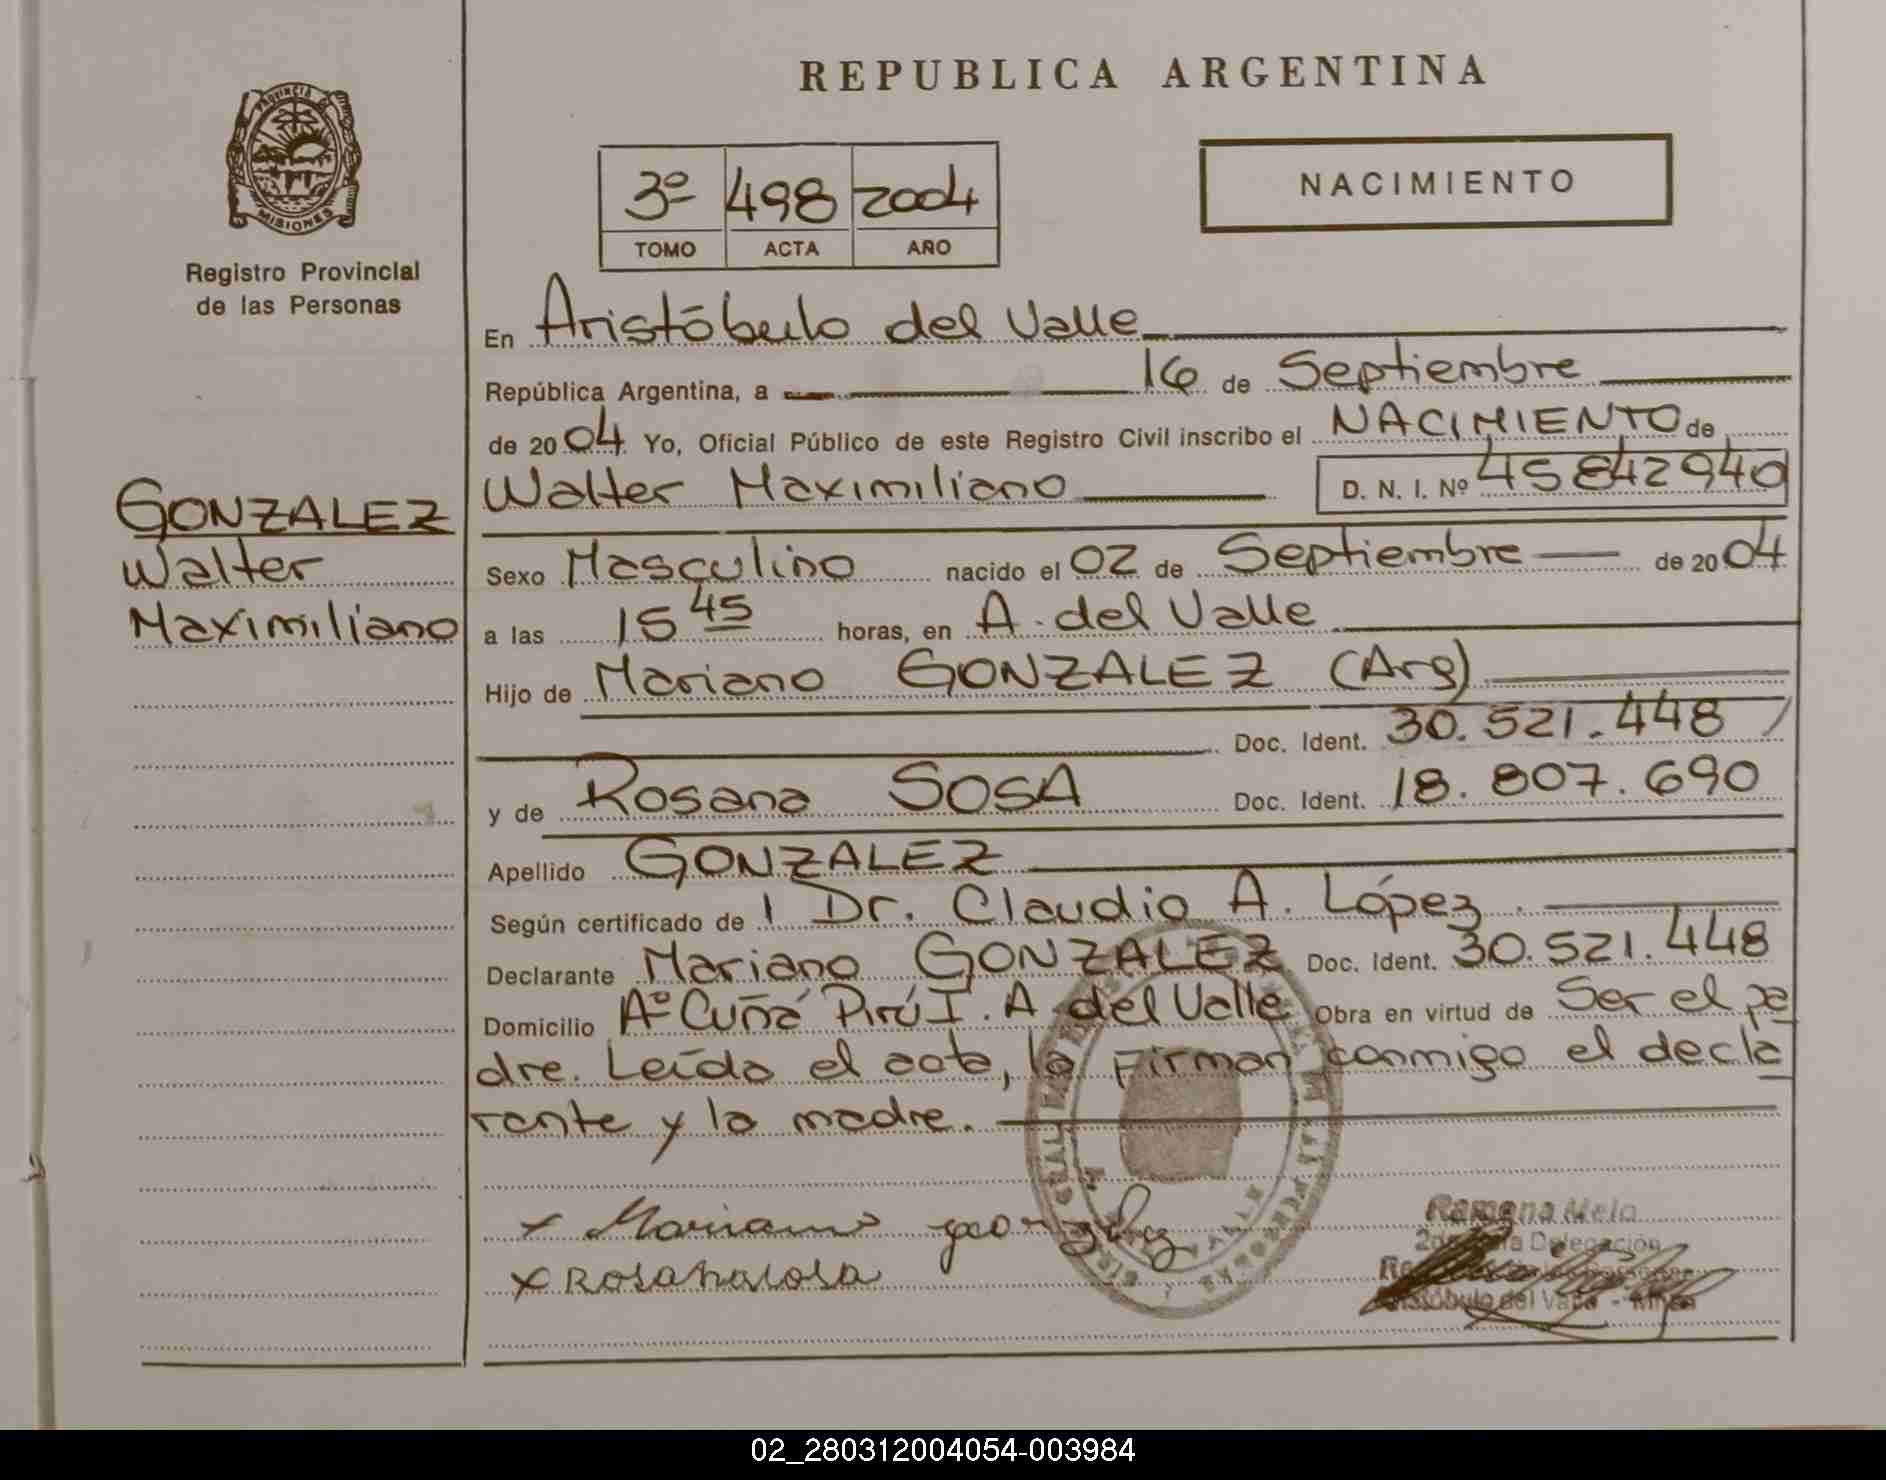 REPUBLICA ARGENTINA
PROVINCIA DE
MISIONES
Registro Provincial
de las Personas
3º 498 2004
TOMO ACTA AÑO
NACIMIENTO
En Aristóbulo del Valle
República Argentina, a 16 de Septiembre
de 2004 Yo, Oficial Público de este Registro Civil inscribo el NACIMIENTO de
GONZALEZ
Walter
Maximiliano
Walter Maximiliano D. N. I. Nº 45842940
Sexo Masculino nacido el 02 de Septiembre de 2004
a las 15 45 horas, en A. del Valle
Hijo de Mariano GONZALEZ (Arg)
Doc. Ident. 30.521.448
y de Rosana SOSA Doc. Ident. 18.807.690
Apellido GONZALEZ
Según certificado de Dr. Claudio A. López.
Declarante Mariano GONZALEZ Doc. Ident. 30.521.448
Domicilio Aº Cuñá Pirú I. A. del Valle Obra en virtud de Ser el pa
dre. Leída el acta, la firman conmigo el decla
rante y la madre.
x Mariano gonzalez
x Rosana sosa
Ramona Melo
Delegación
Aristóbulo del Valle - Mnes
02_280312004054-003984